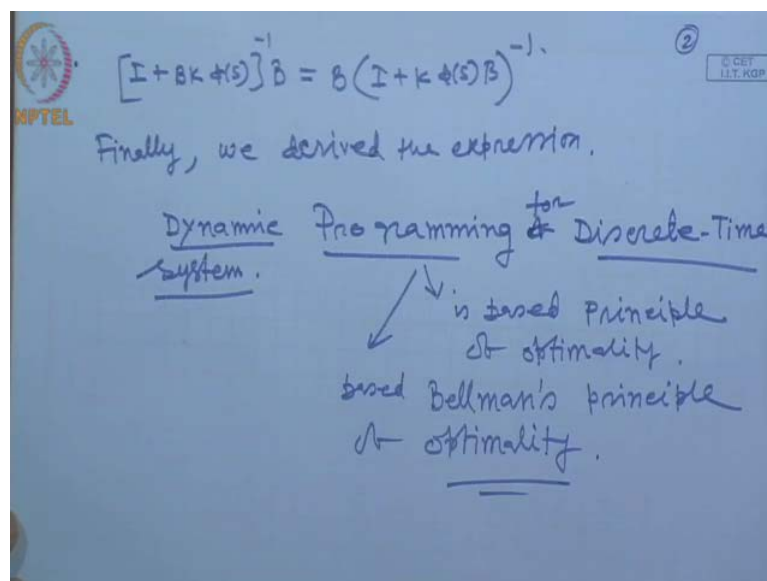 ②
© CET
I.I.T. KGP
[I + BK Φ(s)]⁻¹ B = B (I + K Φ(s) B)⁻¹.
NPTEL
Finally, we derived the expression.
for
Dynamic Programming Discrete-Time
System.
is based Principle
of optimality.
based Bellman's principle
of optimality.